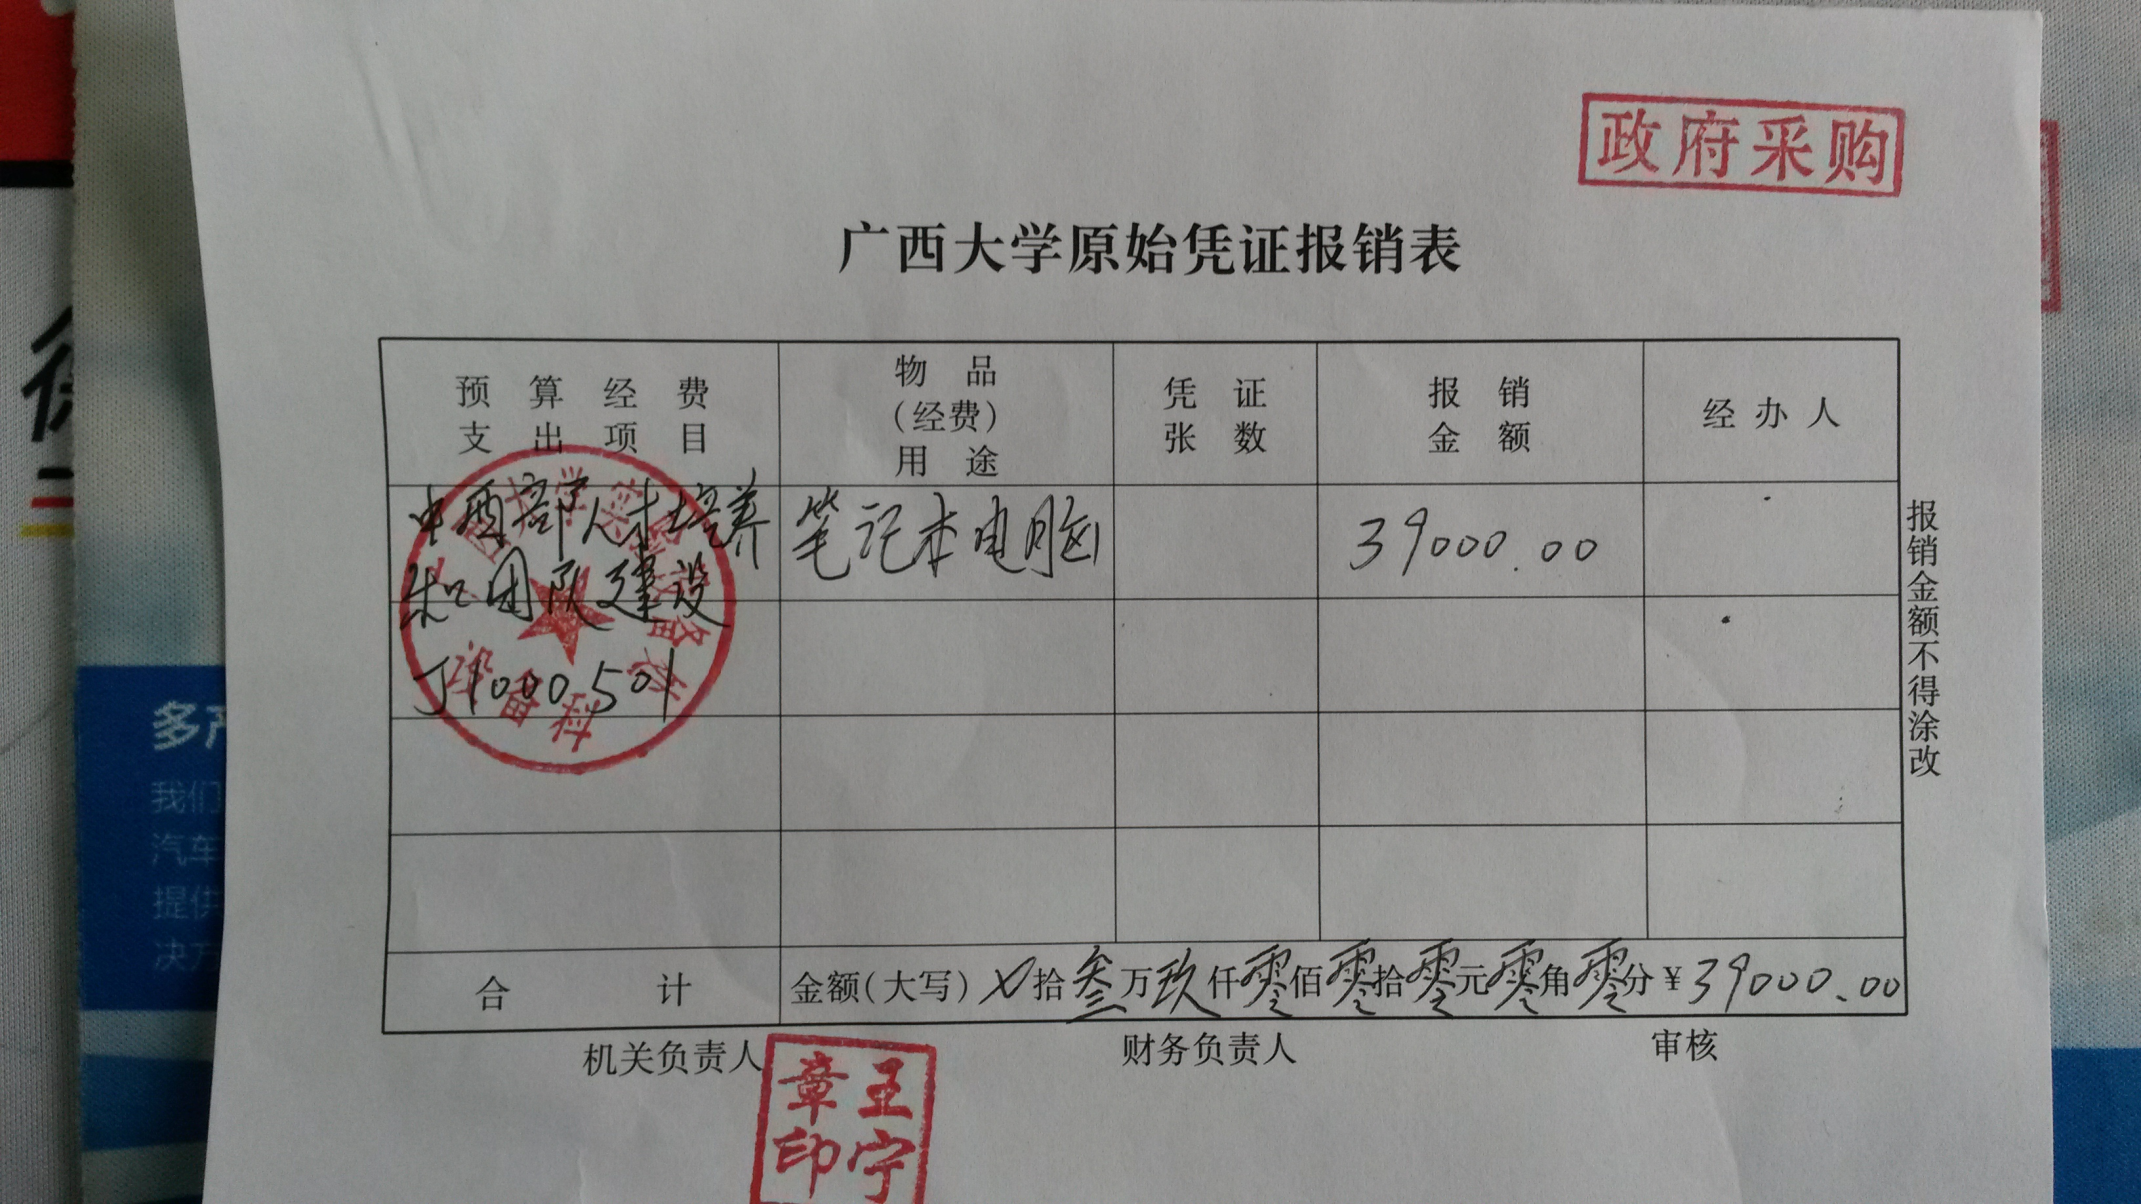 政府采购
广西大学原始凭证报销表
预算经费
支出项目
物品
(经费)
用途
凭证
张数
报销
金额
经办人
中西部人才培养
和团队建设
J1000501
笔记本电脑
39000.00
报销金额不得涂改
合计
金额(大写)X拾叁万玖仟零佰零拾零元零角零分¥39000.00
机关负责人
财务负责人
审核
王宁
章印
多产
我们
汽车
提供
决方